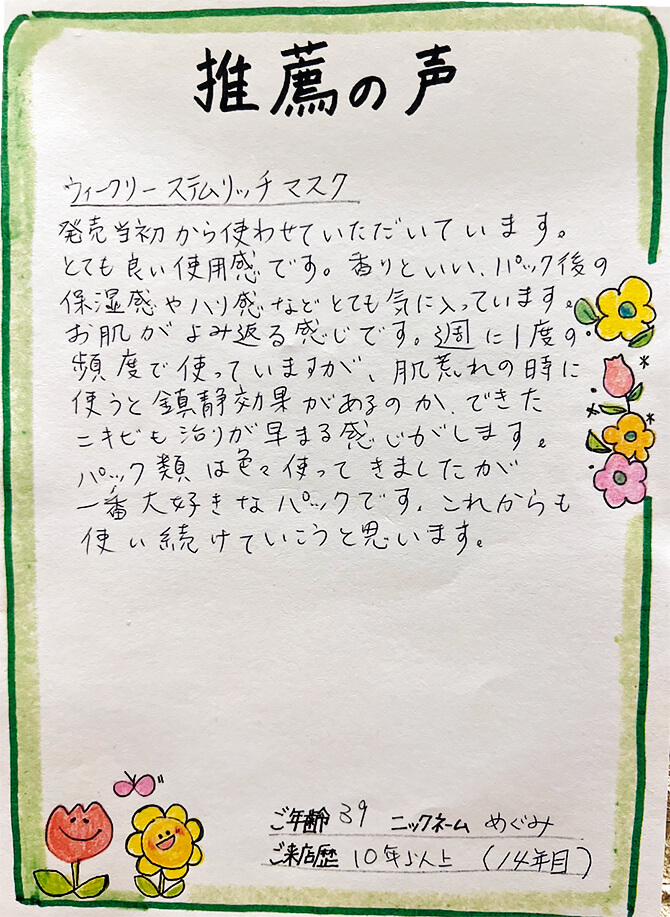 推薦の声
ウィークリーステムリッチマスク
発売当初から使わせていただいています。
とても良い使用感です。香りといい、パック後の
保湿感やハリ感などとても気に入っています。
お肌がよみ返る感じです。週に1度の
頻度で使っていますが、肌荒れの時に
使うと鎮静効果があるのか、できた
ニキビも治りが早まる感じがします。
パック類は色々使ってきましたが
一番大好きなパックです。これからも
使い続けていこうと思います。
ご年齢 39 ニックネーム めぐみ
ご来店歴 10年以上 (14年目)